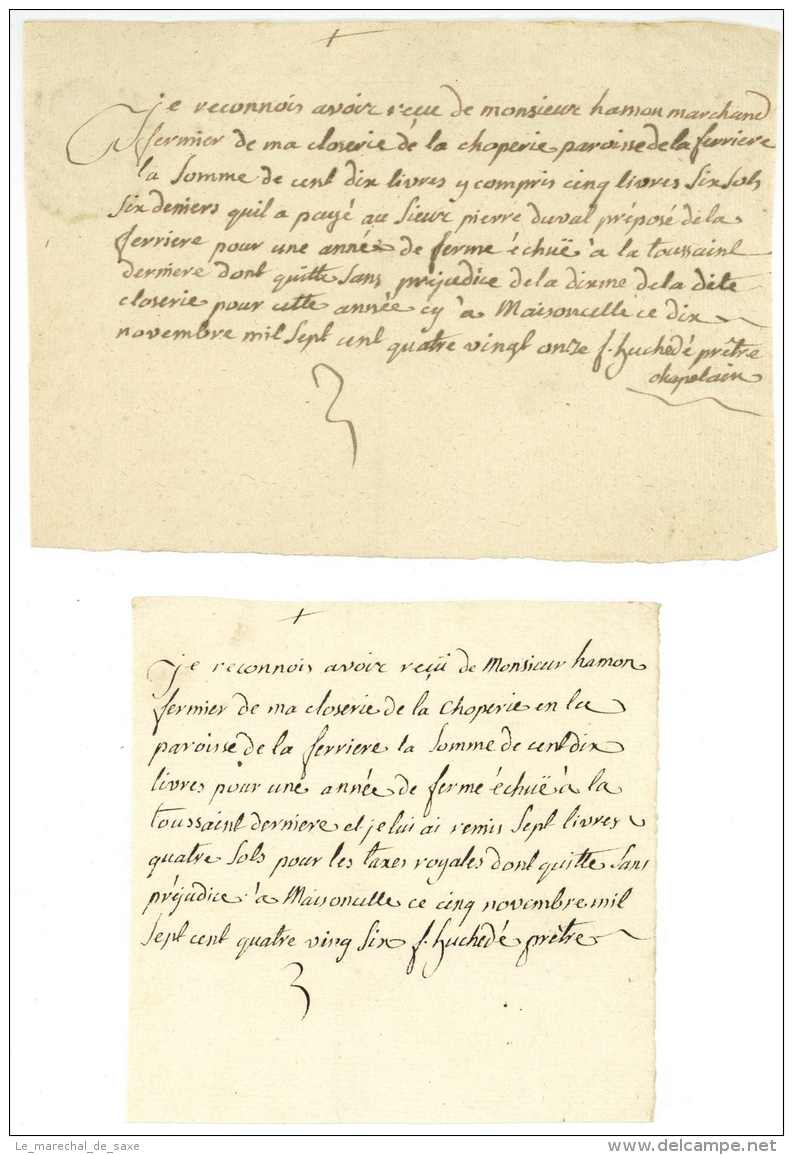 je reconnois avoir reçu de monsieur hamon marchand
fermier de ma closerie de la choperie paroisse de la ferriere
la Somme de cent dix livres y compris cinq livres Six Sols
Six deniers quil a payé au Sieur pierre duval préposé de la
ferriere pour une année de ferme échuë à la toussaint
derniere dont quitte Sans préjudice de la dixme de la dite
closerie pour cette année cy à Maisoncelle ce dix
novembre mil Sept cent quatre vingt onze f. huchedé prêtre
chapelain
je reconnois avoir reçü de Monsieur hamon
fermier de ma closerie de la Choperie en la
paroisse de la ferriere la Somme de cent dix
livres pour une année de ferme échuë à la
toussaint derniere et je lui ai remis Sept livres
quatre Sols pour les taxes royales dont quitte Sans
préjudice à Maisoncelle ce cinq novembre mil
Sept cent quatre ving Six f. huchedé prêtre
Le_marechal_de_saxe
delcampe.net